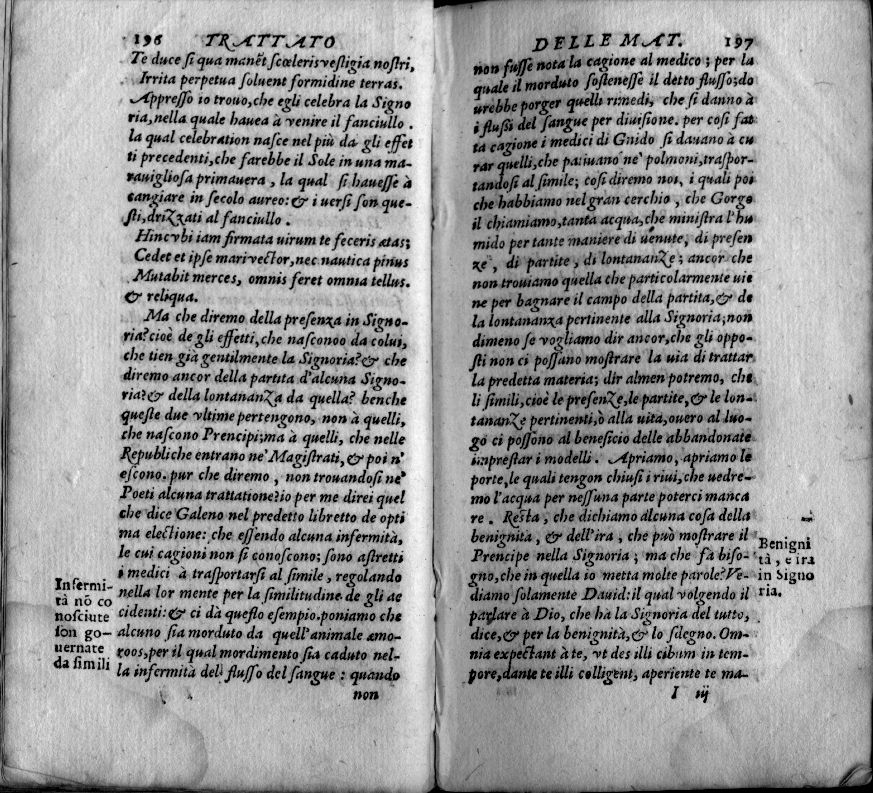 196 TRATTATO
Te duce si qua manẽt scœleris vestigia nostri,
Irrita perpetua soluent formidine terras.
Appresso io trouo, che egli celebra la Signo
ria, nella quale hauea à venire il fanciullo.
la qual celebration nasce nel più da gli effet
ti precedenti, che farebbe il Sole in una ma-
rauigliosa primauera, la qual si hauesse à
cangiare in secolo aureo: & i uersi son que-
sti, drizzati al fanciullo.
Hinc vbi iam firmata uirum te feceris ætas;
Cedet et ipse mari vector, nec nautica pinus
Mutabit merces, omnis feret omnia tellus.
& reliqua.
Ma che diremo della presenza in Signo-
ria? cioè de gli effetti, che nasconoo da colui,
che tien già gentilmente la Signoria? & che
diremo ancor della partita d'alcuna Signo-
ria? & della lontananza da quella? benche
queste due vltime pertengono, non à quelli,
che nascono Prencipi; ma à quelli, che nelle
Republiche entrano ne' Magistrati, & poi n'
escono. pur che diremo, non trouandosi ne'
Poeti alcuna trattatione? io per me direi quel
che dice Galeno nel predetto libretto de opti
ma electione: che essendo alcuna infermità,
le cui cagioni non si conoscono; sono astretti
i medici à trasportarsi al simile, regolando
nella lor mente per la similitudine de gli ac
cidenti: & ci dà questo esempio. poniamo che
alcuno sia morduto da quell'animale æmo-
roos, per il qual mordimento sia caduto nel-
la infermità del flusso del sangue: quando
non
Infermi-
tà nõ co
nosciute
son go-
uernate
da simili
DELLE MAT. 197
non fusse nota la cagione al medico; per la
quale il morduto sostenesse il detto flusso; do
urebbe porger quelli rimedi, che si danno à
i flussi del sangue per diuisione. per cosi fat
ta cagione i medici di Gnido si dauano à cu
rar quelli, che patiuano ne' polmoni, traspor-
tandosi al simile; cosi diremo noi, i quali poi
che habbiamo nel gran cerchio, che Gorgo
il chiamiamo, tanta acqua, che ministra l'hu
mido per tante maniere di uenute, di presen
ze, di partite, di lontananze; ancor che
non trouiamo quella che particolarmente uie
ne per bagnare il campo della partita, & de
la lontananza pertinente alla Signoria; non
dimeno se vogliamo dir ancor, che gli oppo-
sti non ci possano mostrare la uia di trattar
la predetta materia; dir almen potremo, che
li simili, cioè le presenze, le partite, & le lon-
tananze pertinenti, ò alla uita, ouero al luo-
go ci possono al beneficio delle abbandonate
imprestar i modelli. Apriamo, apriamo le
porte, le quali tengon chiusi i riui, che uedre-
mo l'acqua per nessuna parte poterci manca
re. Resta, che dichiamo alcuna cosa della
benignità, & dell'ira, che può mostrare il
Prencipe nella Signoria; ma che fà biso-
gno, che in quella io metta molte parole? Ve-
diamo solamente Dauid: il qual volgendo il
parlare à Dio, che hà la Signoria del tutto,
dice, & per la benignità, & lo sdegno. Om-
nia expectant à te, vt des illi cibum in tem-
pore, dante te illi colligent, aperiente te ma-
I iij
Benigni
tà, e ira
in Signo
ria.